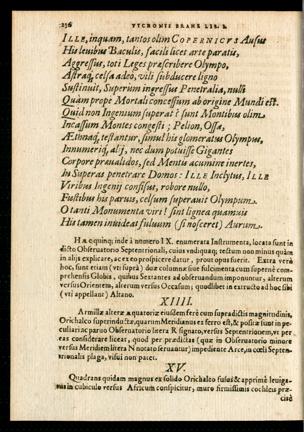 256 TYCHONIS BRAHE LIB. I.
ILLE, inquam, tantos olim COPERNICVS Ausus
His levibus Baculis, facili licet arte paratis,
Aggressus, toti Leges præscribere Olympo,
Astraq, celsa adeò, vili subducere ligno
Sustinuit, Superûm ingressus Penetralia, nulli
Quàm prope Mortali concessum ab origine Mundi est.
Quid non Ingenium superat? sunt Montibus olim
Incassum Montes congesti; Pelion, Ossa,
Æthnaq, testantur, simul his glomeratus Olympus,
Innumeriq, alij, nec dum potuisse Gigantes
Corpore prævalidos, sed Mentis acumine inertes,
in Superas penetrare Domos: ILLE Inclytus, ILLE
Viribus Ingenij confisus, robore nullo,
Fustibus his parvis, celsum superavit Olympum.
O tanti Monumenta viri! sint lignea quamvis
His tamen invideat fulvum (si nosceret) Aurum.
Hæ equinq; inde à numero IX. enumerata Instrumenta, locata sunt in
dicto Observatorio Septentrionali, cuius vnduquaq; testum non minus quàm
in alijs explicare, ac ex eo prospicere datur, prout opus fuerit. Extra verò
hoc, sunt etiam (vt suprà) duæ columnæ siue fulcimenta cum supernè com-
prehensis Globis, quibus Sextantes ad obseruandum imponuntur, alterum
versus Orientem, alterum versus Occasum; quodlibet in extructo ad hoc sibi
(vti appellant) Altano.
XIIII.
Armillæ alteræ æquatoriæ eiusdem ferè cum supradictis magnitudinis,
Orichalco superinductæ, quarum Meridianus ex ferro est, & positæ sunt in pe-
culiari ac paruo Observatorio litera R signato, versus Septentrionem, vt per
eas considerare liceat, quod per prædictas (quæ in Observatorio minore
versus Meridiem litera N notato seruantur) impediente Arce, in cœli Septen-
trionalis plaga, visui non patet.
XV.
Quadrans quidam magnus ex solido Orichalco fusus & apprimè læuiga-
tus in cubiculo versus Africum conspicitur, muro firmissimis cochleis præ-
cisè